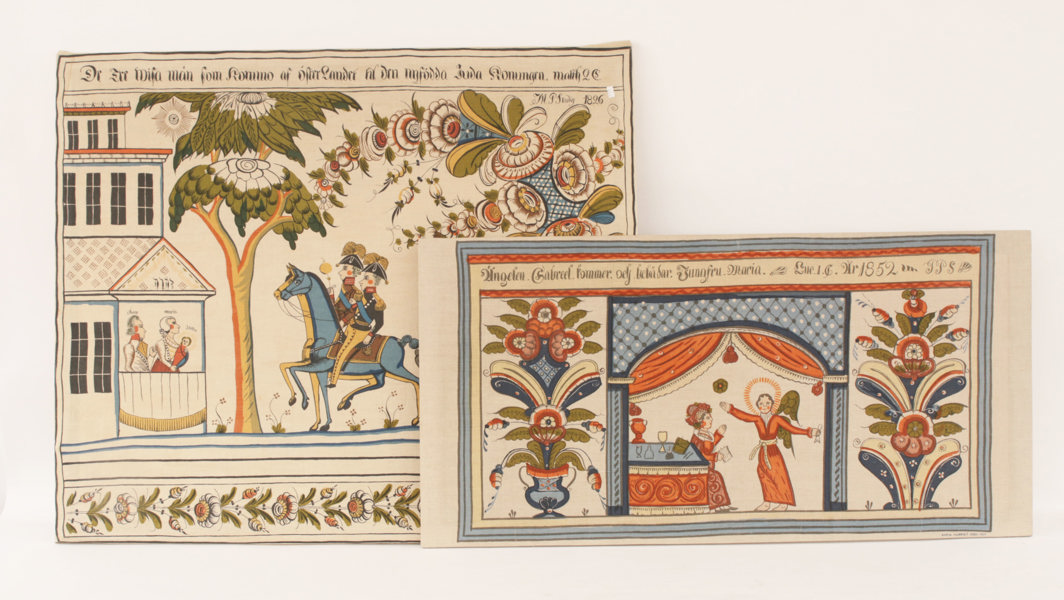 De Tre Wisa män som kommo af ÖsterLandet til den nyfödda Juda Konungen. math 2 C
1826
Angelen. Gabreel. kommer. och bebådar. Jungfru. Maria. Luc. 1. C. År 1852 JPS